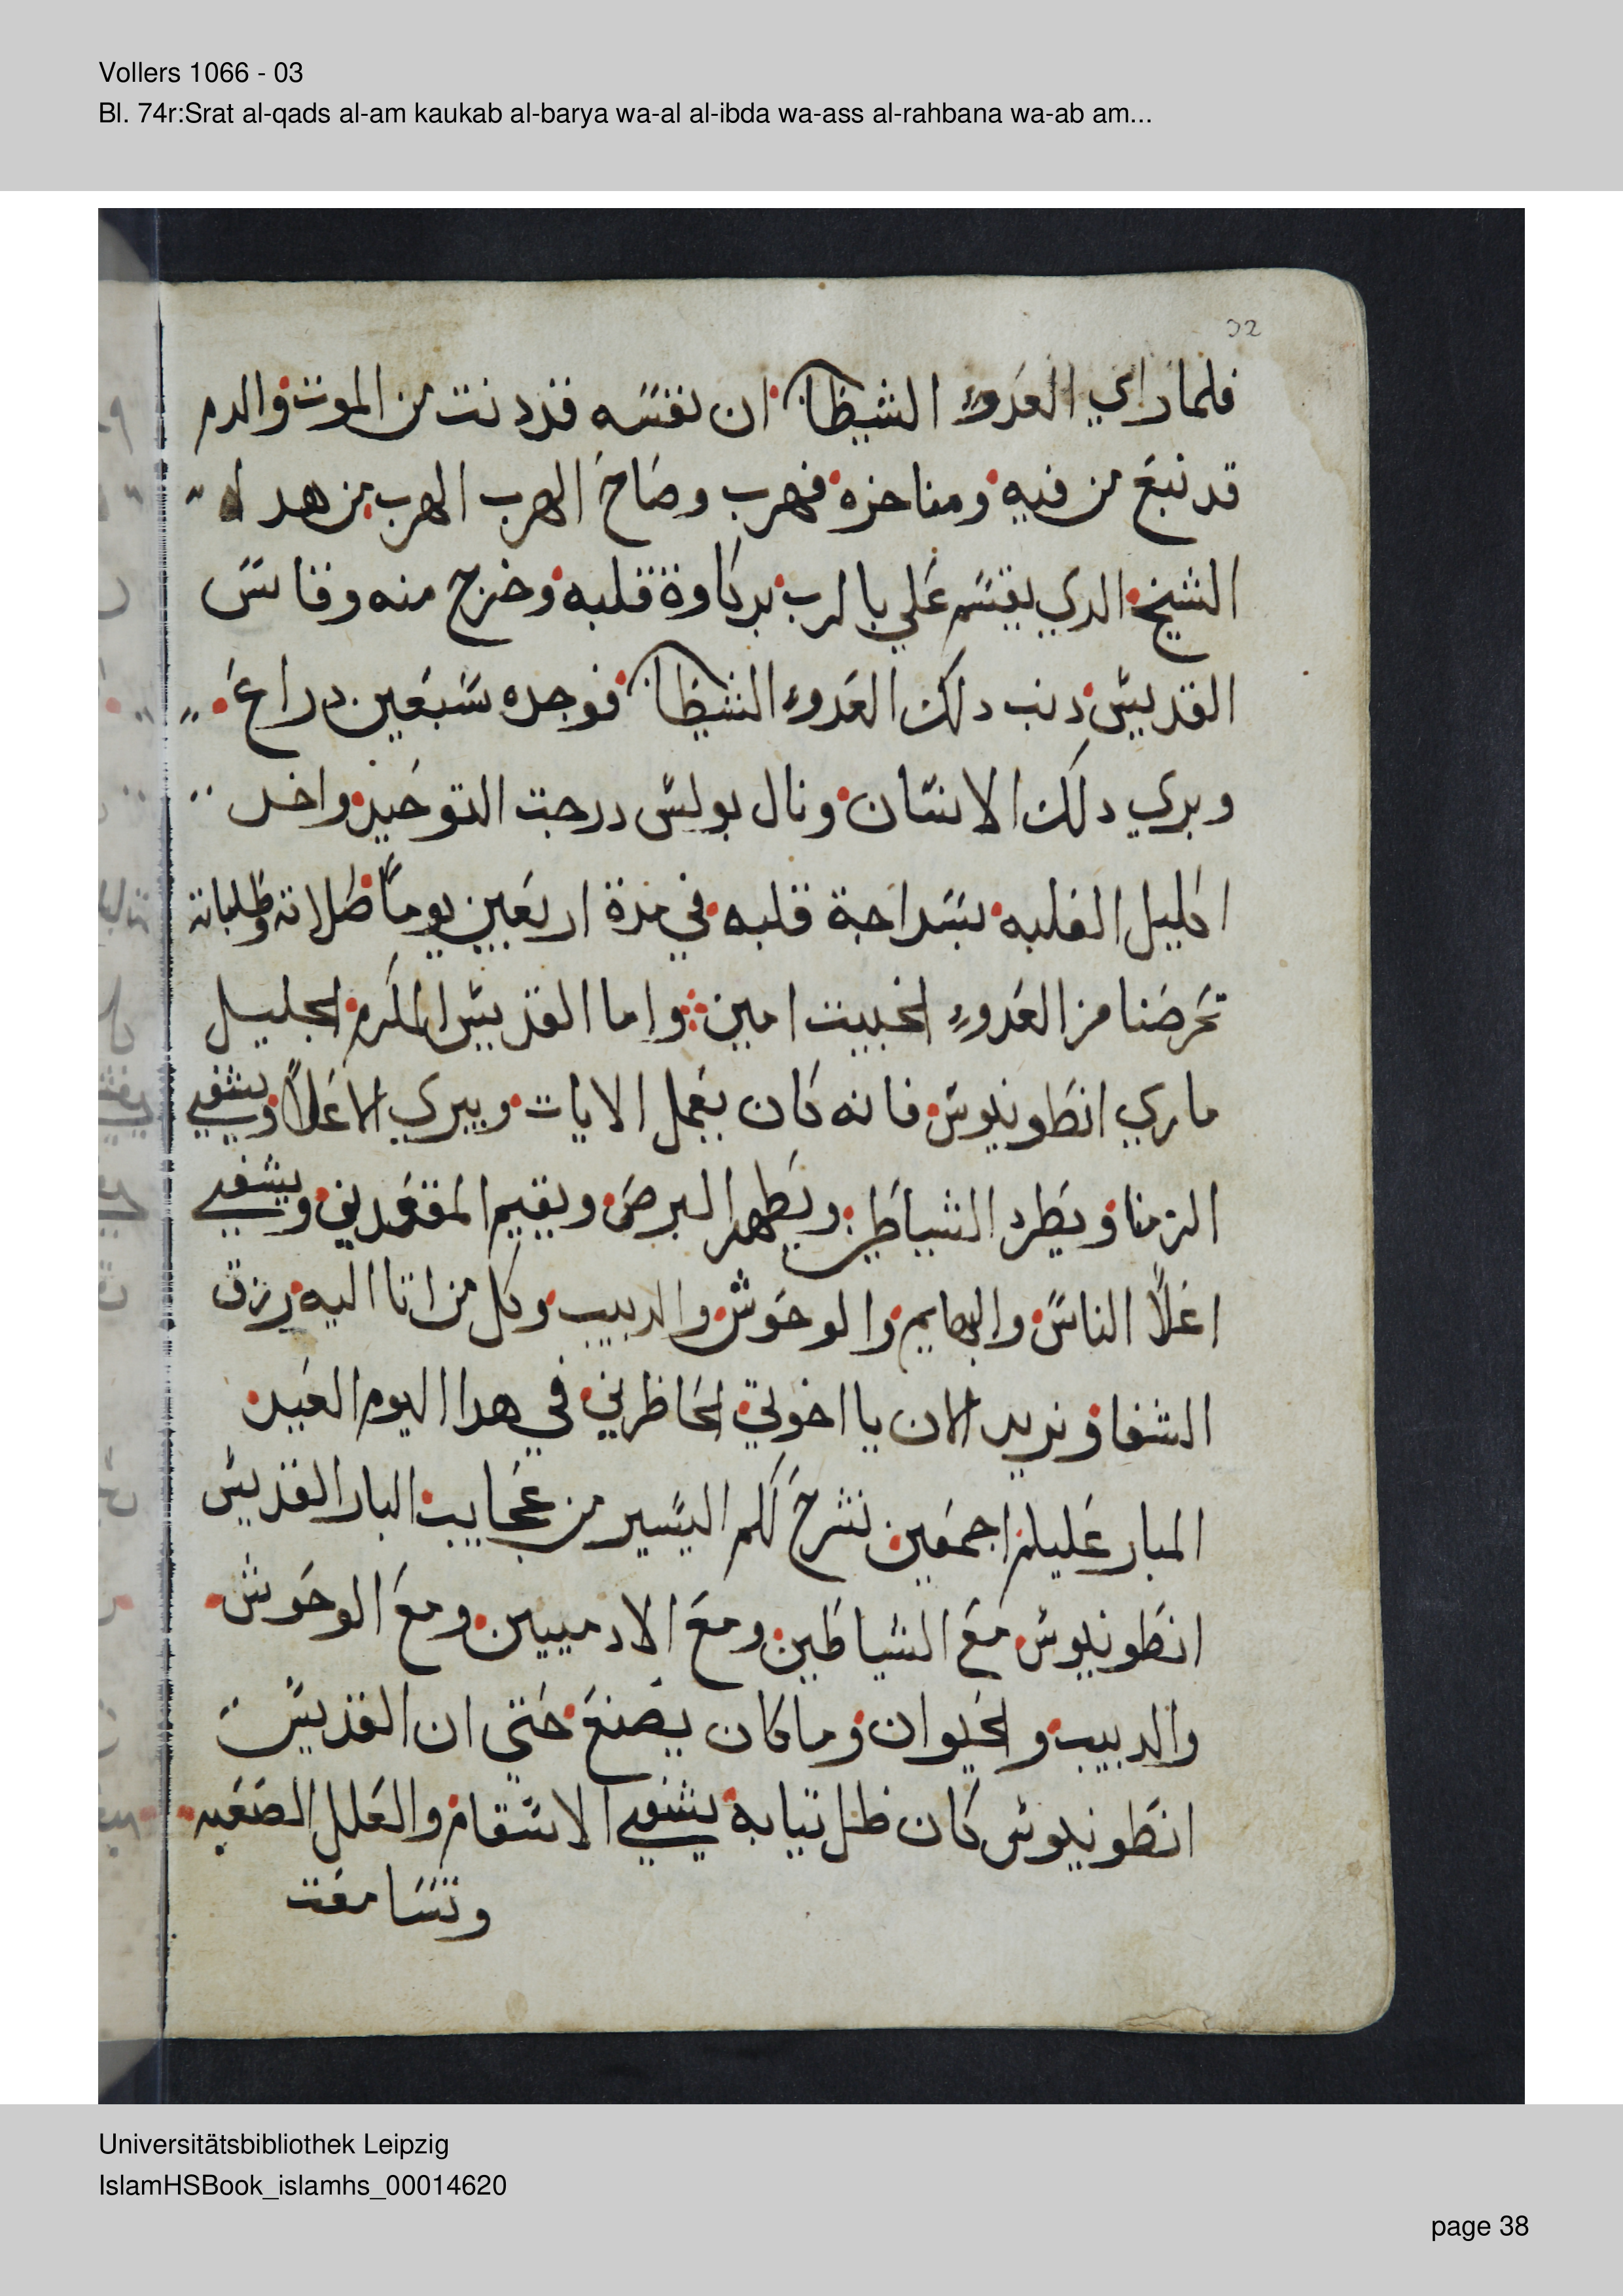 Vollers 1066 - 03
Bl. 74r:Srat al-qads al-am kaukab al-barya wa-al al-ibda wa-ass al-rahbana wa-ab am...
32
فلما راي العدوء الشيطان ان نفسه قد دنت من الموت والدم
قد نبع من فيه ومناخره فهرب وصاح الهرب الهرب من هدا
الشيخ الدي يقسم علي بالرب بركاوة قلبه وخرج منه وقاس
القديس دنب دلك العدوء الشيطان فوجده سبعين دراع
وبري دلك الانسان ونال بولس درجت التوحيد واخد
اكليل الغلبه بسداجة قلبه في مدة اربعين يوماً صلاته وطلباته
تحرصنا من العدوء الخبيت امين واما القديس المكرم الجليل
ماري انطونيوس فانه كان يعمل الايات ويبري الاعلاً ويشفي
الزمنا ويطرد الشياطين ويطهر البرص ويقيم المقعدين ويشفي
اعلاً الناس والبهايم والوحوش والدبيب وكل من اتا اليه رزق
الشفا ونريد الان يا اخوتي الحاظرين في هدا اليوم العيد
المبار عليكم اجمعين نشرح لكم اليسير من عجايب البار القديس
انطونيوس مع الشياطين ومع الادميين ومع الوحوش
والدبيب والحيوان وما كان يصنع حتي ان القديس
انطونيوس كان ظل تيابه يشفي الاسقام والعلل الصعبه
وتسامعت
Universitätsbibliothek Leipzig
IslamHSBook_islamhs_00014620
page 38